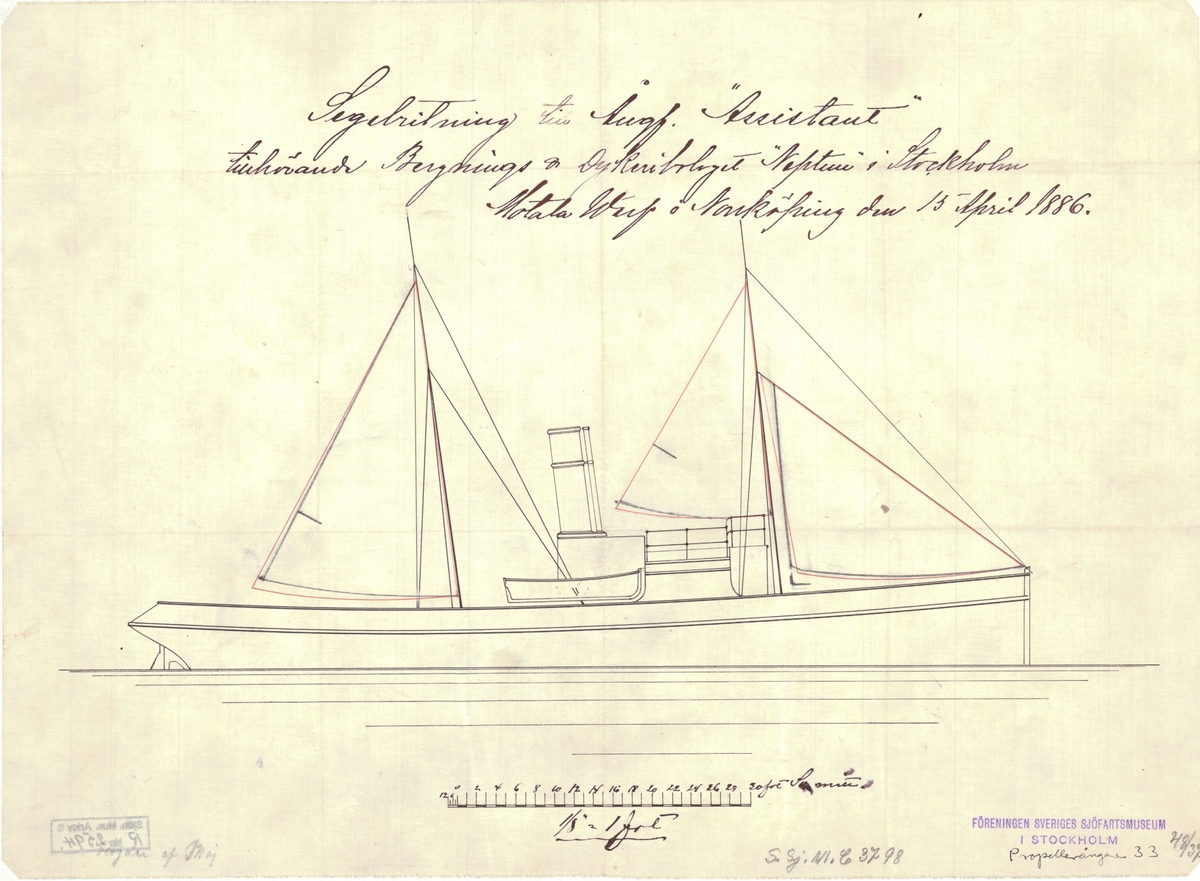 Segelritning till Ångf. "Assistant"
tillhörande Bergnings & Dykeribolaget "Neptun" i Stockholm
Motala Werf i Norrköping den 15 April 1886.
12 6 0 2 4 6 8 10 12 14 16 18 20 22 24 26 28 30 fot
1/8" = 1 fot
FÖRENINGEN SVERIGES SJÖFARTSMUSEUM
I STOCKHOLM
Propellerångare 33
48/37
S. Sj. M. C 3798
Sjöh. Mus. Arkiv S
R 2594.